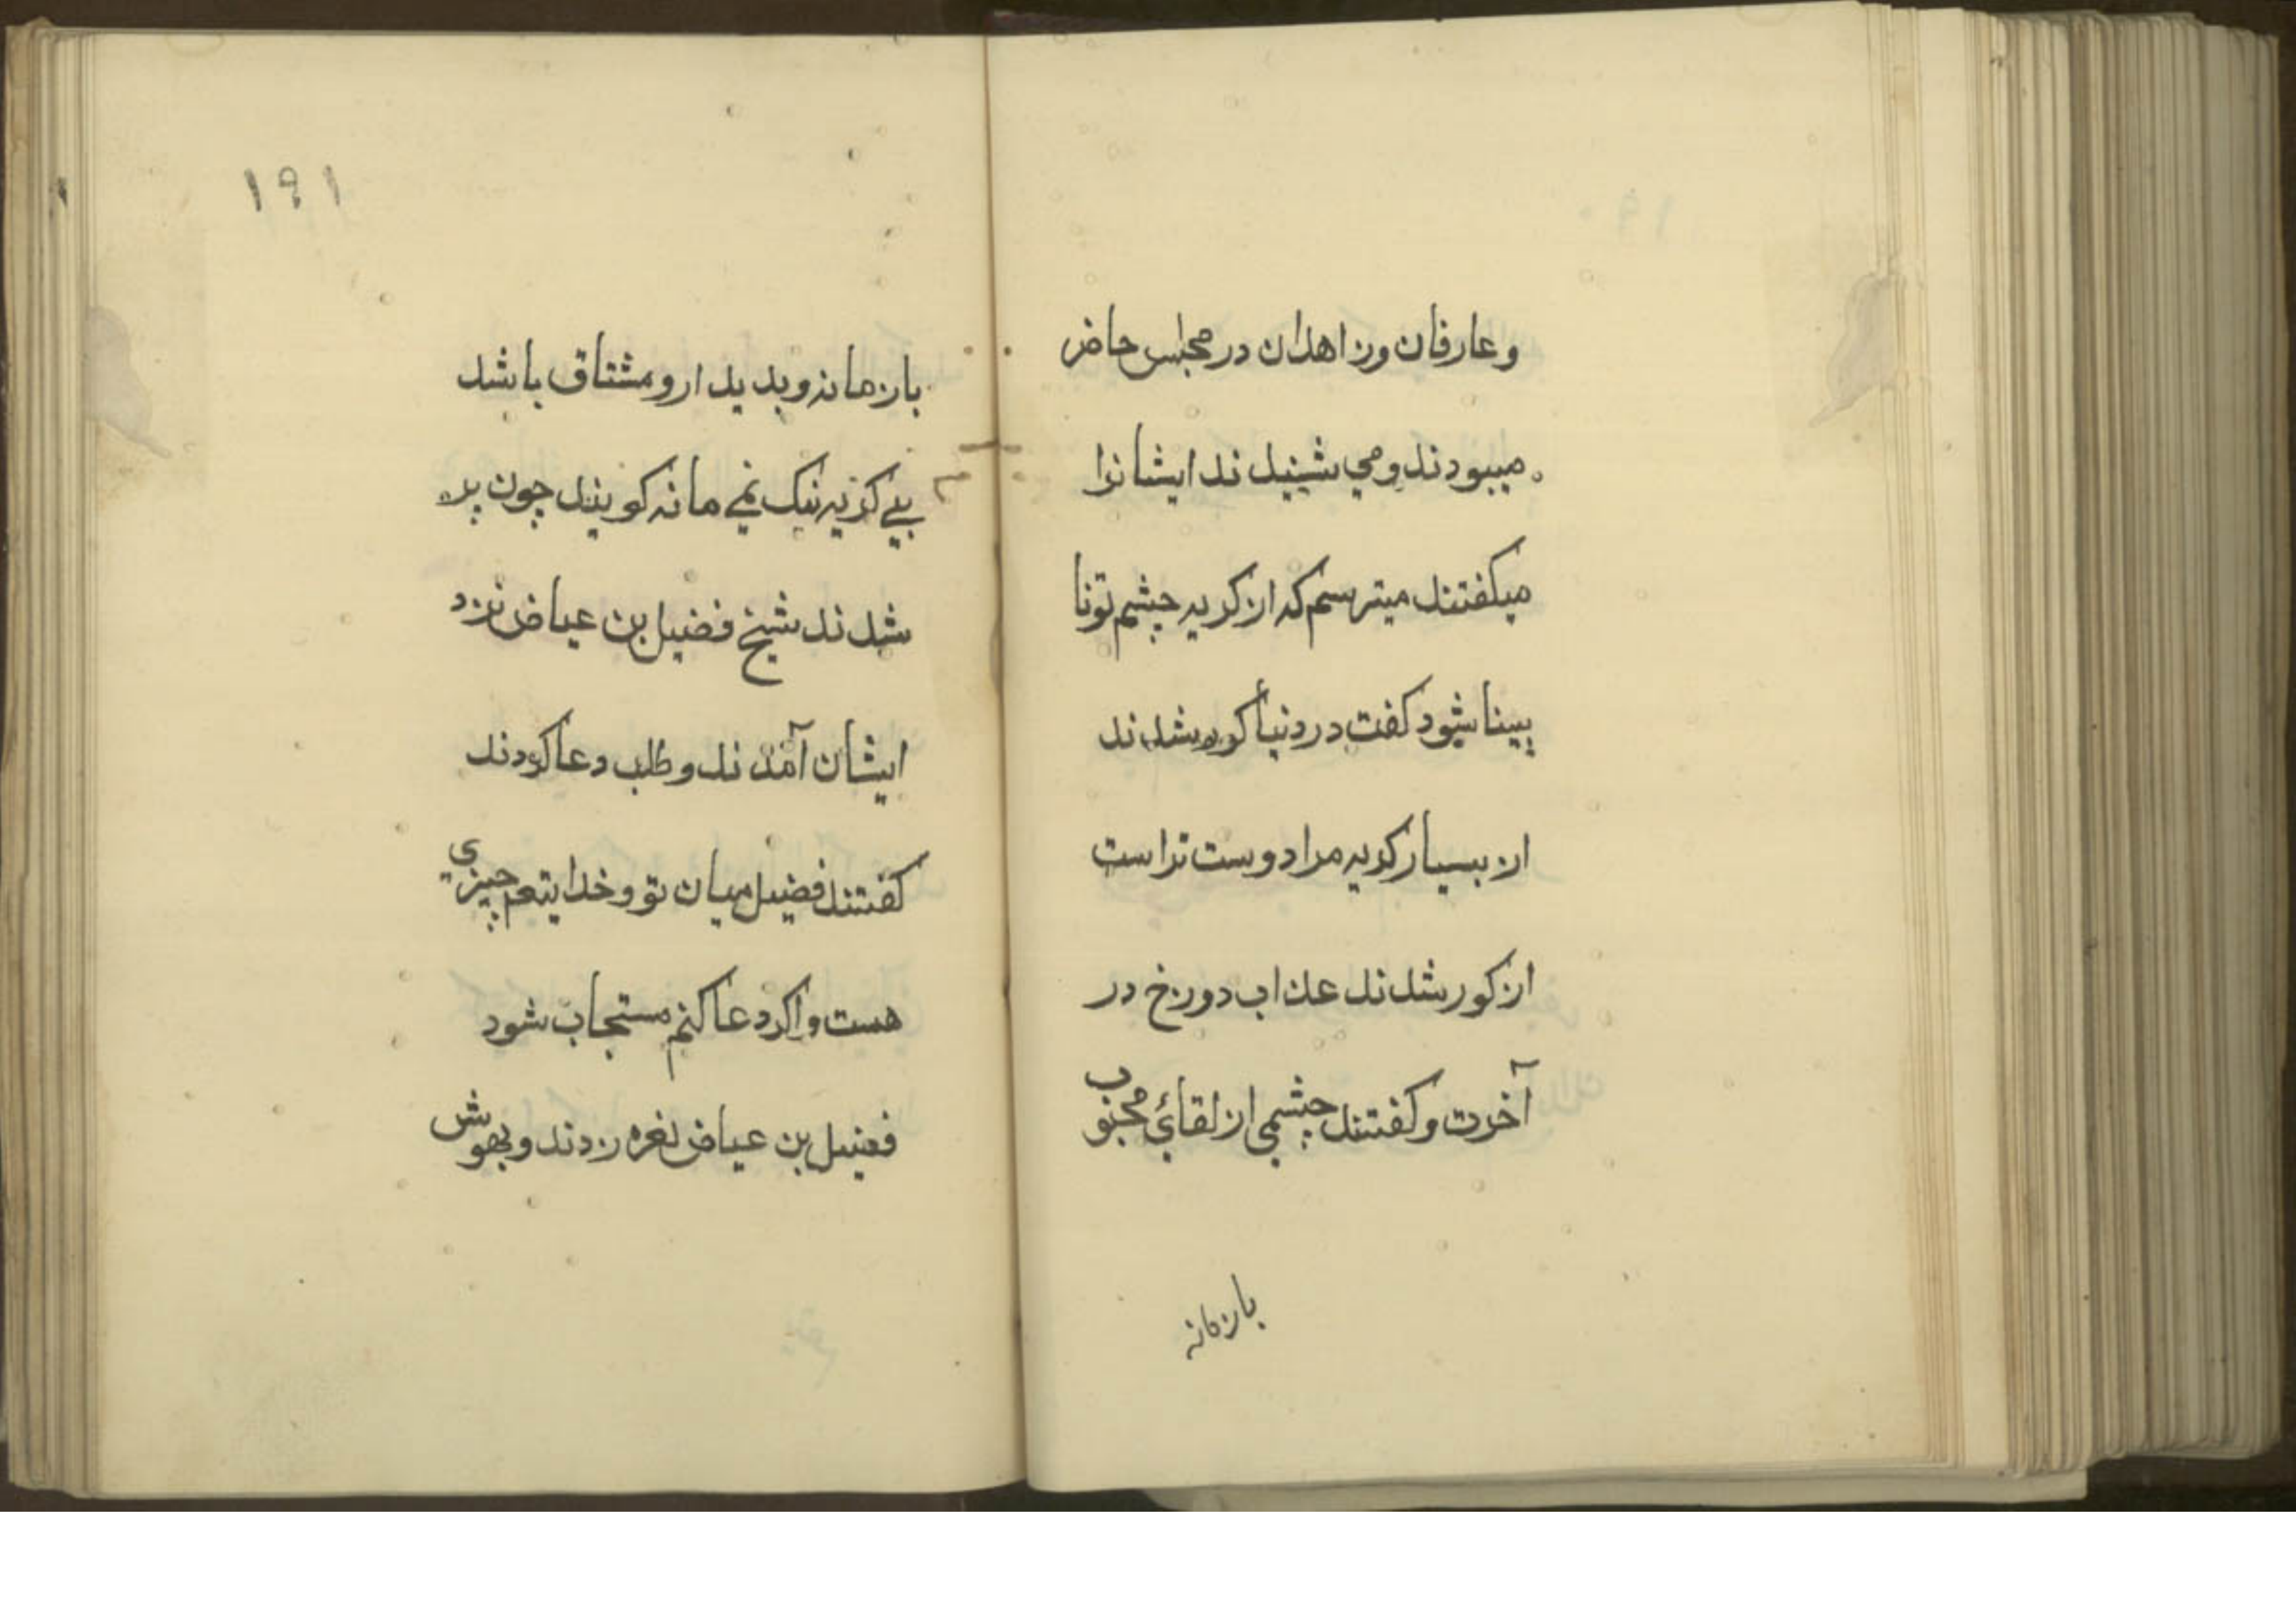 و عارفان و زاهدان در مجلس حاضر
میبودند و می شنیدند ایشانرا
میکفتند میترسم که از کریه چشم تو نا
بینا شود کفت در دنیا کور شدند
از بسیار کریه مرا دوست تر است
از کور شدند عذاب دوزخ در
آخرت و کفتند چشمی از لقائ محبوب
بازمانه
۱۹۱
بازمانه و بدیدار و مشتاق باشد
بی کریه نیک نمی مانه کویند چون پیر
شدند شیخ فضیل بن عیاض نزد
ایشان آمدند و طلب دعا کردند
کفتند فضیل میان تو و خدایتعم چیزی
هست و اکر دعا کنم مستجاب شود
فضیل بن عیاض نعره زدند و بیهوش